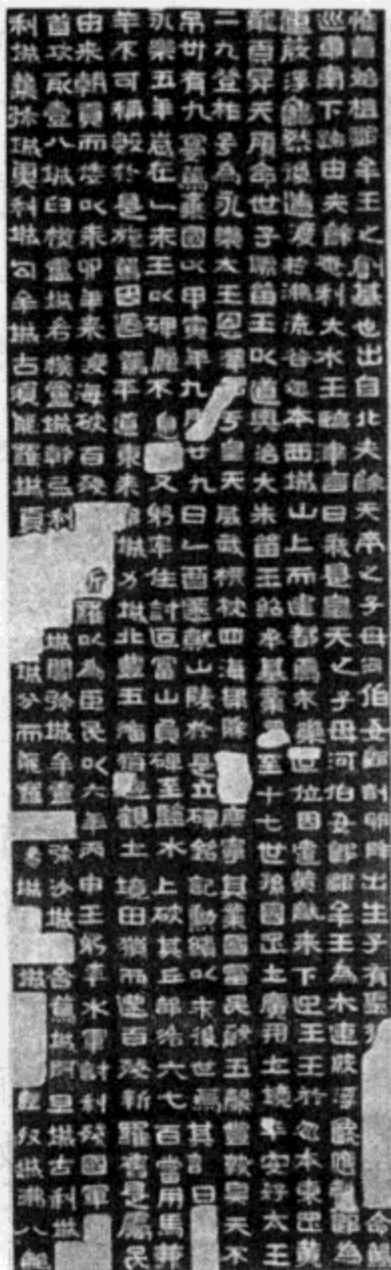 惟昔始祖鄒牟王之創基也出自北夫餘天帝之子母河伯女郎剖卵降出生子有聖命駕
巡車南下路由夫餘奄利大水王臨津言曰我是皇天之子母河伯女郎鄒牟王為木連葭浮龜應聲即為
連葭浮龜然後造渡於沸流谷忽本西城山上而建都焉不樂世位因遣黃龍來下迎王王於忽本東罡黃
龍負昇天顧命世子儒留王以道興治大朱留王紹承基業至十七世孫國罡上廣開土境平安好太王
二九登祚号為永樂太王恩澤于皇天威武橫被四海掃除庶寧其業國富民殷五穀豊熟昊天不
弔卅有九寔駕棄國以甲寅年九月廿九日乙酉遷就山陵於是立碑銘記勳績以示後世焉其詞曰
永樂五年歲在乙未王以碑麗不息又躬率住討叵富山負碑至鹽水上破其丘部洛六七百當用馬群
年不可稱數於是旋駕因過駕平道東來城力城北豊五備猶遊觀土境田獵而還百殘新羅舊是屬民
由來朝貢而倭以未卯年來渡海破百殘斤羅以為臣民以六年丙申王躬率水軍討利殘國軍
首攻取壹八城臼模盧城若模盧城幹弖利城閣弥城牟盧城弥沙城舍蔦城阿旦城古利城
利城雜弥城奧利城勾牟城古須耶羅城頁城分而耶羅易城城豆奴城沸八那